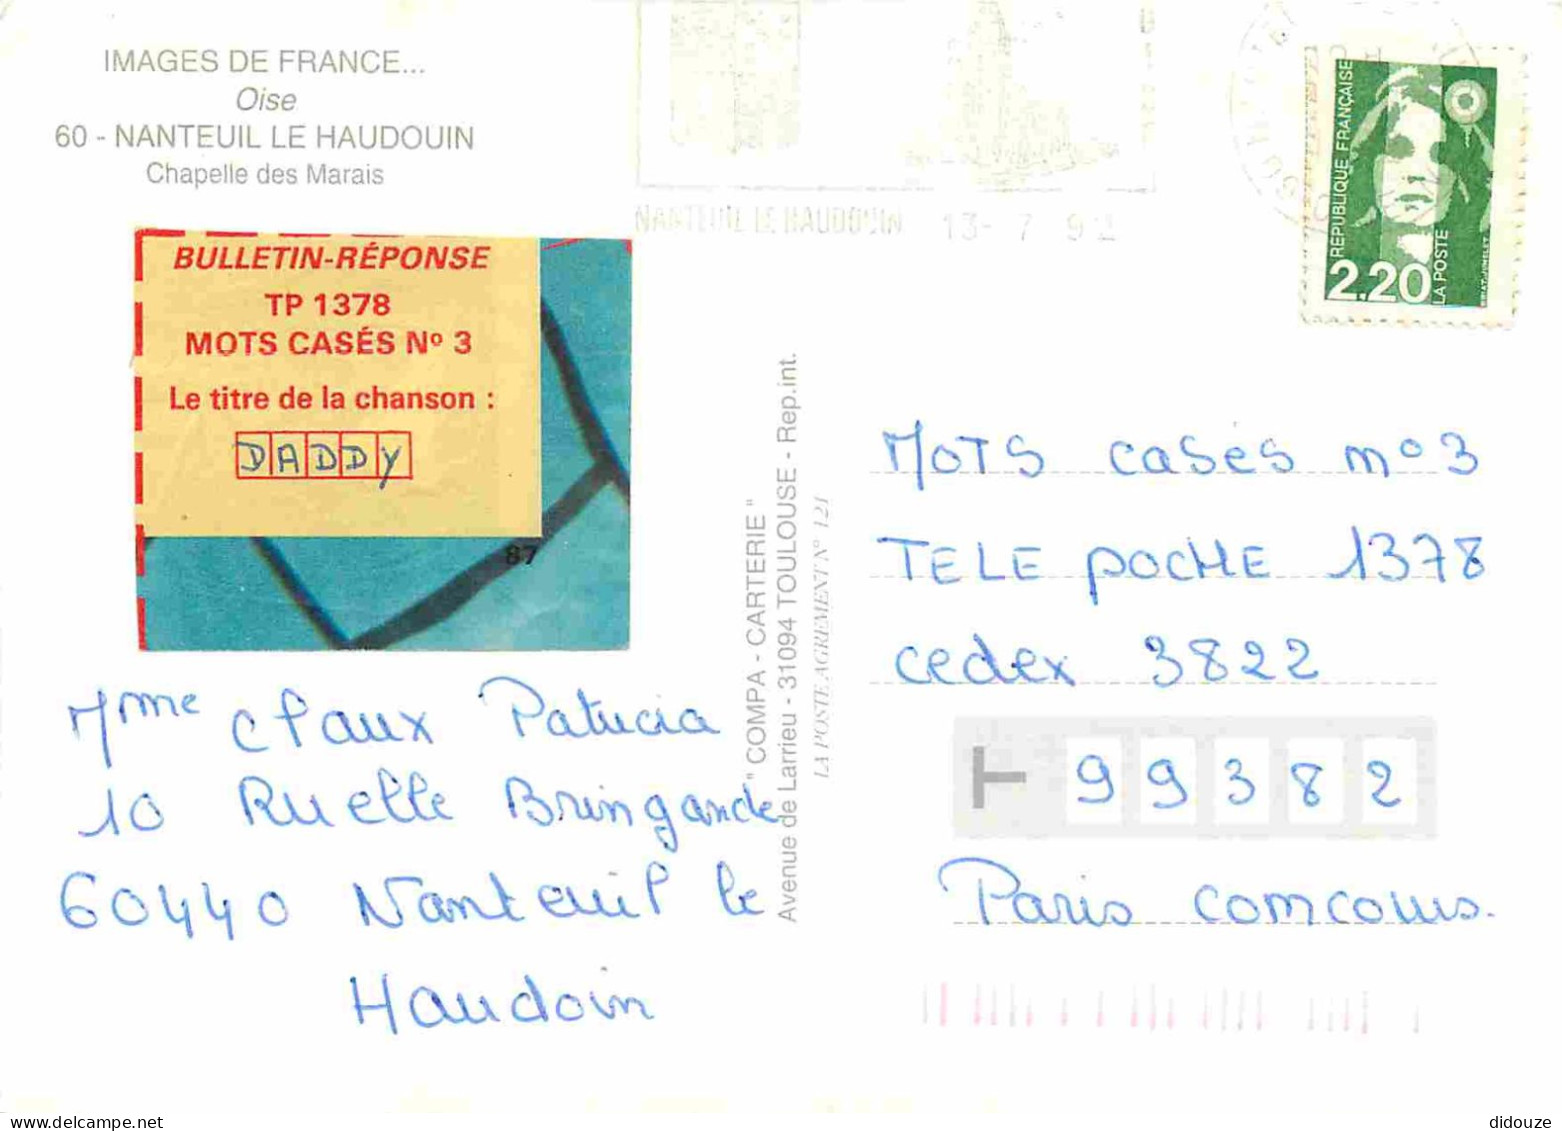 IMAGES DE FRANCE...
Oise
60 - NANTEUIL LE HAUDOUIN
Chapelle des Marais
NANTEUIL LE HAUDOUIN 13-7 92
RÉPUBLIQUE FRANÇAISE
2,20
LA POSTE
BULLETIN-RÉPONSE
TP 1378
MOTS CASÉS Nº 3
Le titre de la chanson :
DADDY
87
Mme claux Patricia
10 Ruelle Bringande
60440 Nanteuil le
Haudoin
" COMPA - CARTERIE "
Avenue de Larrieu - 31094 TOULOUSE - Rep.int.
LA POSTE AGREMENT N° 121
MOTS casés nº 3
TELE POCHE 1378
cedex 3822
99382
Paris concours.
didouze